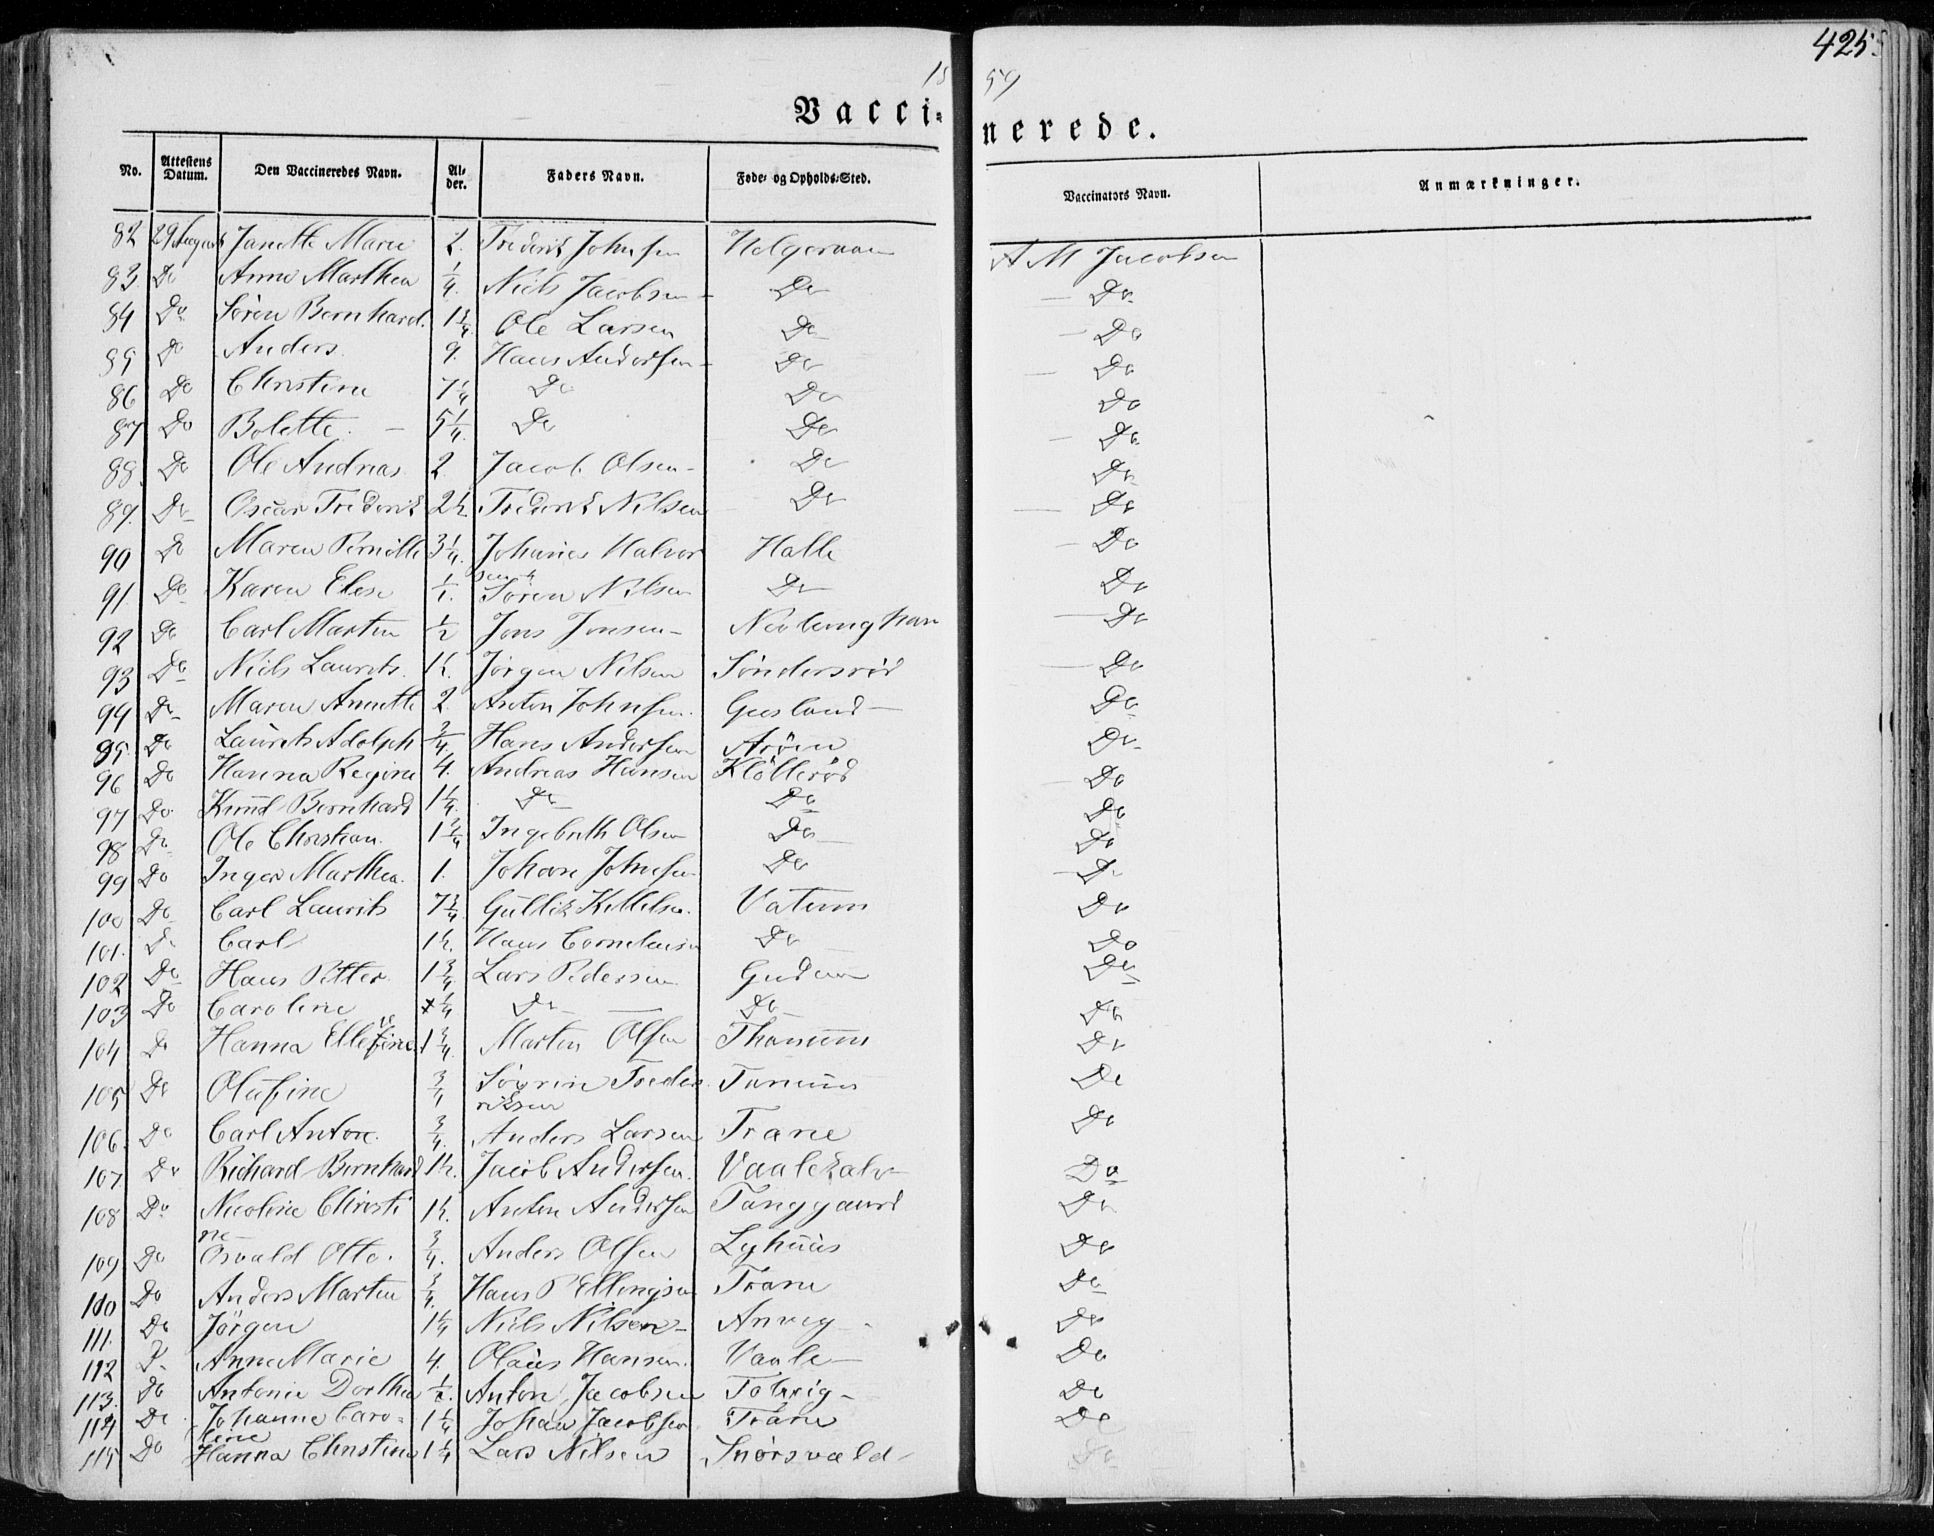 425
1859
Vaccinerede.
No. Attestens Datum. Den Vaccineredes Navn. Alder. Faders Navn. Føde- og Opholds-Sted. Vaccinators Navn. Anmærkninger.
82 29 August Janette Marie 2. Frederik Johnsen Helgeraaen A M Jacobsen
83 Do Anne Marthea ¼. Niels Jacobsen - Do - Do
84 Do Søren Bernhard. 1¾. Ole Larsen Do - Do
85 Do Anders. 9. Hans Andersen - Do - Do
86 Do Christine 7¼ Do Do Do
87 Do Bolette. - 5¼. Do Do - Do
88. Do Ole Andreas 2. Jacob Olsen - Do Do
89. Do Oscar Frederik 2½. Frederik Nilsen Do - Do
90 Do Maren Pernille 3¼. Johanes Halvor Halle - Do
sen
91. Do Karen Elese Søren Nilsen Do Do
92 Do Carl Martin ½ Jens Jensen - - Do
93 Do Niels Laurits. 1½. Jørgen Nilsen Søndersrød - Do
94 Do Maren Annette 2. Anton Johnsen. Gusland - Do
95. Do Laurits Adolph ¾. Hans Andersen Arøen Do
96 Do Hanna Regine 4. Andreas Hansen Kløllerød - Do
97 Do Knud Bernhard 1¼. Do Do Do
98 Do Ole Christian. 1¾ Ingebrith Olsen Do Do
99 Do Inger Marthea. 1. Johan Johnsen Do - Do
100 Do Carl Laurits 7¾. Gullik Kittilsen. Vatnm Do
101. Do Carl 1½. Hans Corneliusen Do Do
102 Do Hans Petter. 1¾. Lars Pedersen Gudem Do
103 Do Caroline ¼ Do Do Do
104 Do Hanna Ellefine 1¾. Martin Olsen Thanum Do
105 Do Olufine ¾ Søvren Freder Tanum Do
riksen
106. Do Carl Anton. ¾. Anders Larsen Trane Do
107 Do Richard Bernhard 1½. Jacob Andersen. Do
108 Do Nicoline Christi 1½. Anton Andersen Tanggaard Do
ne -
109 Do Osvald Otto. ¾. Anders Olsen Lyhuus Do
110 Do Anders Martin ¾. Hans P Ellingsen Trane Do
111. Do Jørgen 1¼ Niels Nilsen - Anvig - Do
112 Do Anne Marie 4. Olaus Hansen. Vaale - Do
113. Do Antonie Dorthea ½. Anton Jacobsen Do
114 Do Johanne Caro- 1¼ Johan Jacobsen Trane Do
line
115 Do Hanna Christine 1¼ Lars Nilsen Snørsvald Do